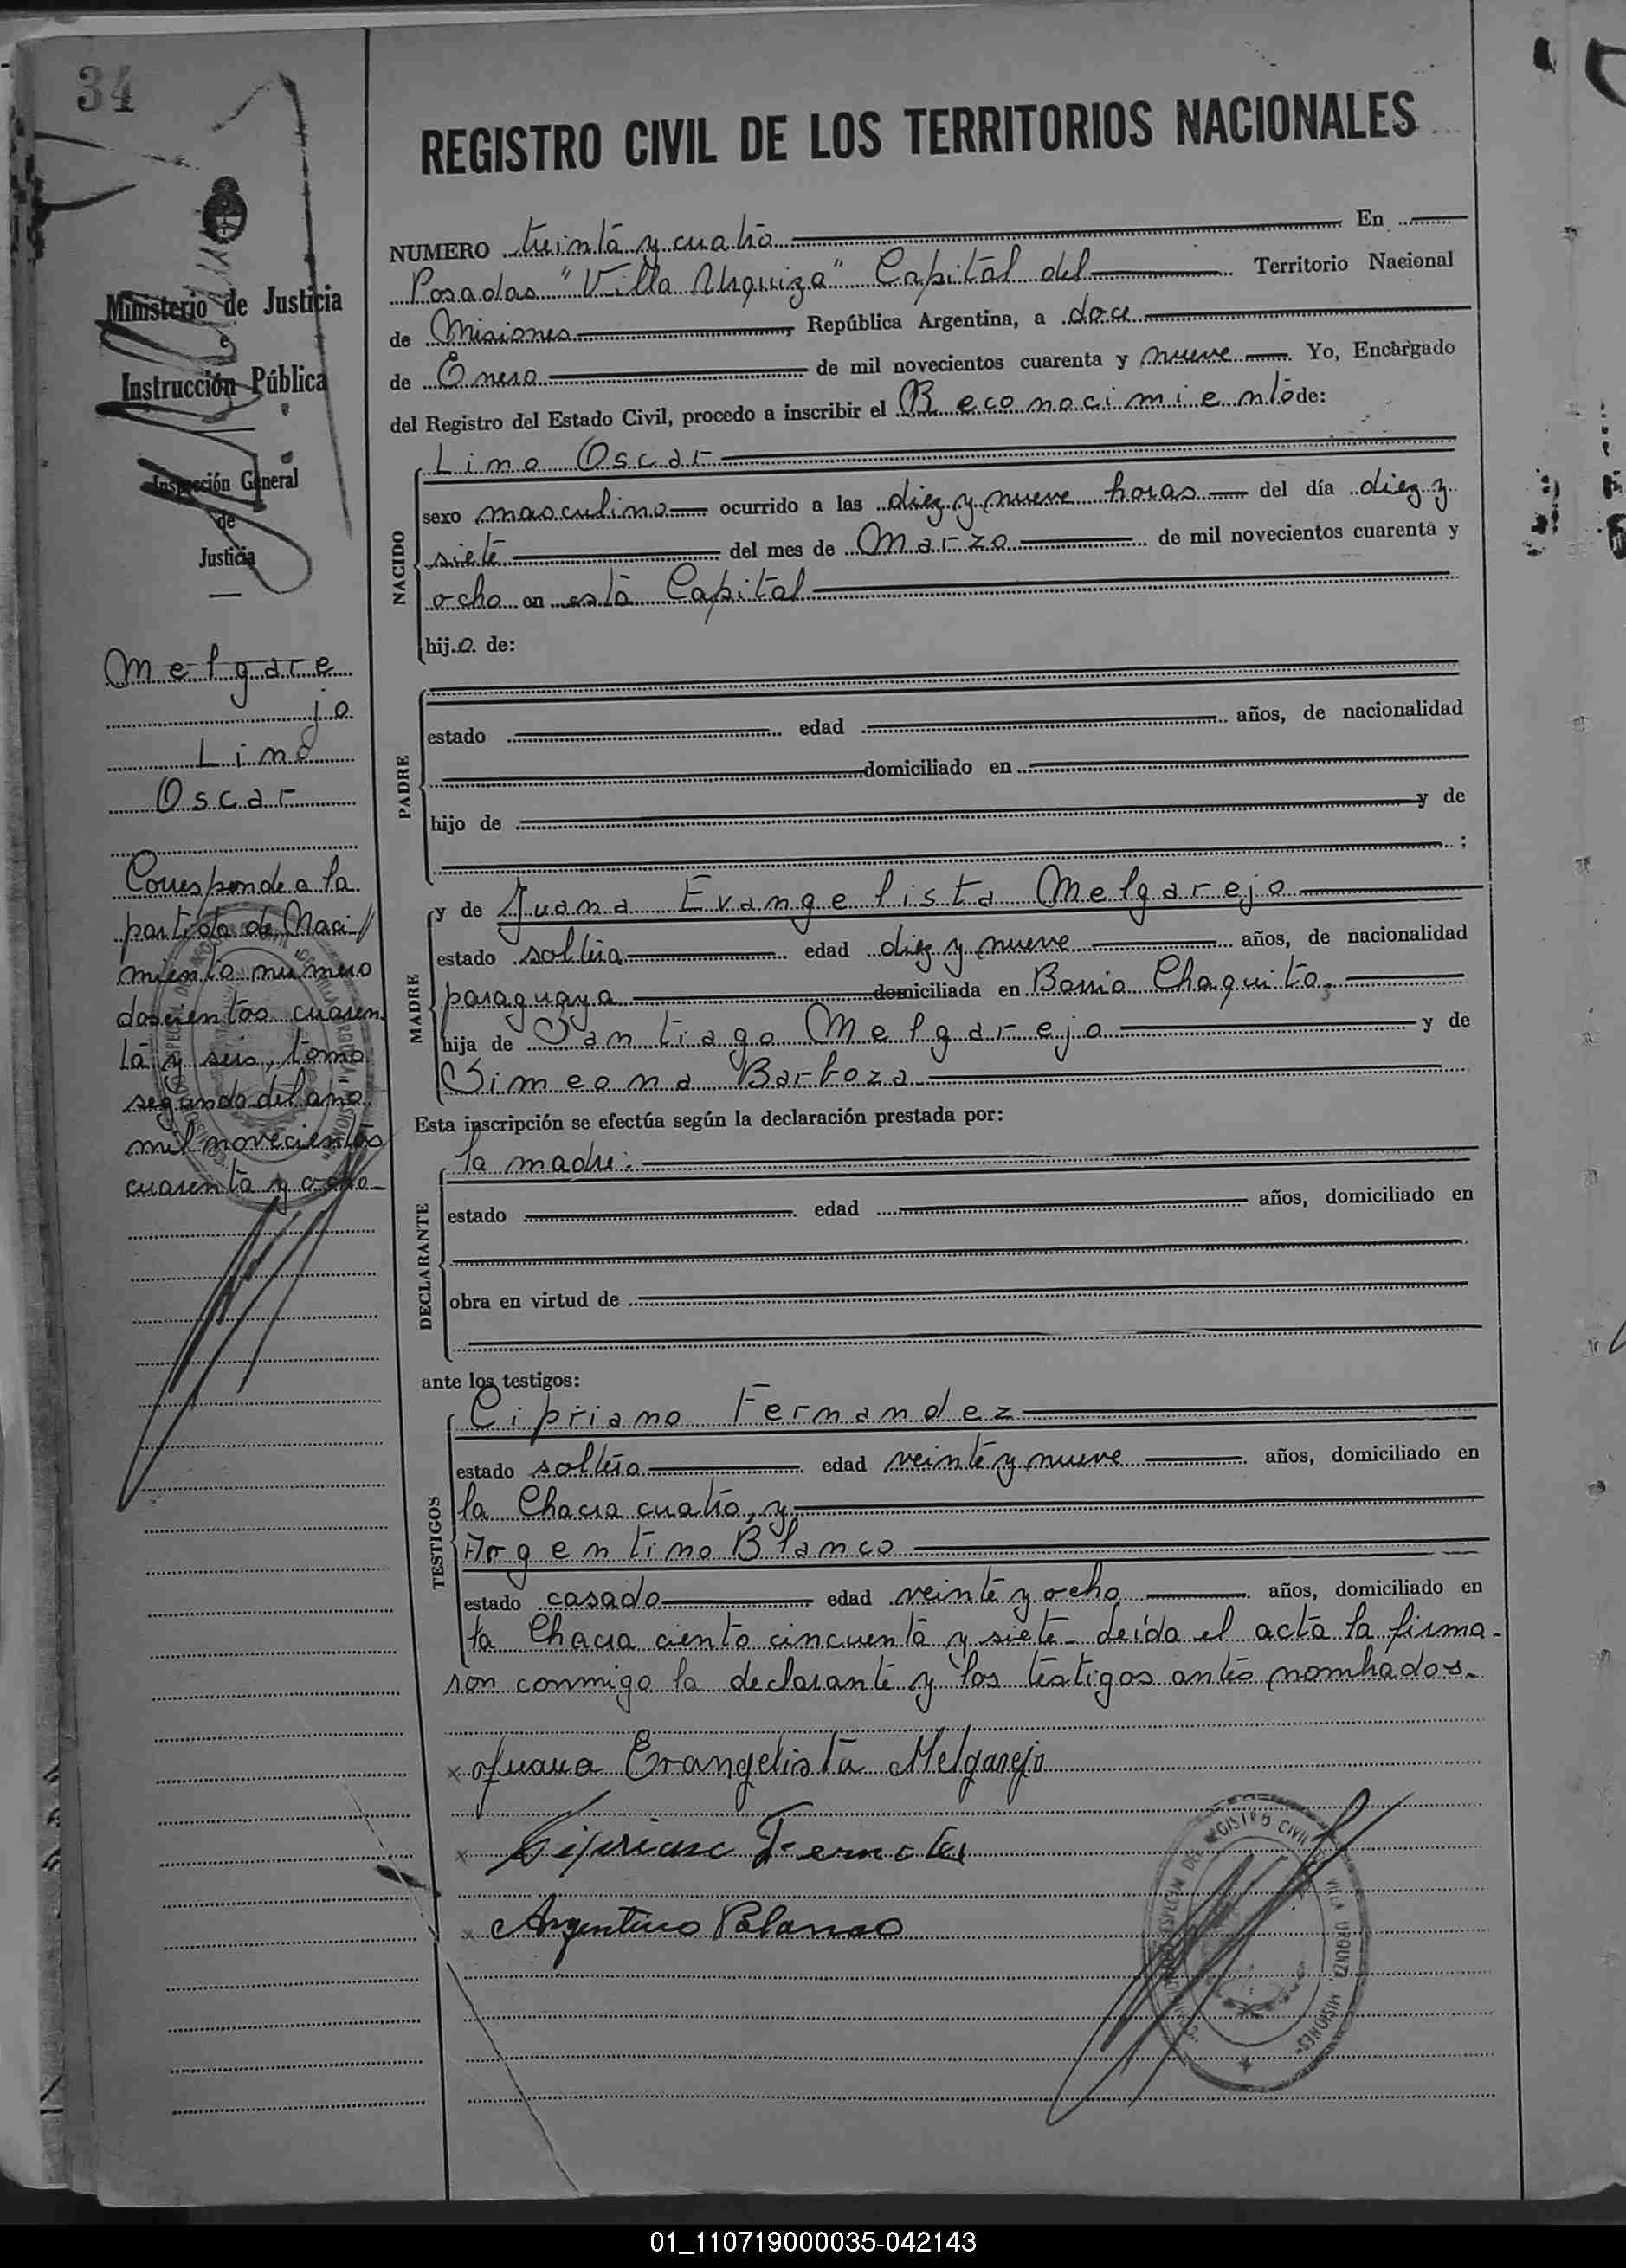 34
Ministerio de Justicia
e
Instrucción Pública
Inspección General
de
Justicia
Melgare
jo
Lino
Oscar
Corresponde a la
partida de Naci//
miento numero
doscientos cuaren
ta y seis, tomo
segundo del año
mil novecientos
cuarenta y ocho-
REGISTRO CIVIL DE LOS TERRITORIOS NACIONALES
NUMERO treinta y cuatro En
Posadas "Villa Urquiza" Capital del Territorio Nacional
de Misiones, República Argentina, a doce
de Enero de mil novecientos cuarenta y nueve. Yo, Encargado
del Registro del Estado Civil, procedo a inscribir el Reconocimiento de:
NACIDO
Lino Oscar
sexo masculino ocurrido a las diez y nueve horas del día diez y
siete del mes de Marzo de mil novecientos cuarenta y
ocho en esta Capital
hijo de:
PADRE
estado edad años, de nacionalidad
domiciliado en
hijo de y de
;
MADRE
y de Juana Evangelista Melgarejo
estado soltera edad diez y nueve años, de nacionalidad
paraguaya domiciliada en Barrio Chaquito,
hija de Santiago Melgarejo y de
Simeona Barboza
Esta inscripción se efectúa según la declaración prestada por:
DECLARANTE
la madre.
estado edad años, domiciliado en
obra en virtud de
ante los testigos:
TESTIGOS
Cipriano Fernandez
estado soltero edad veinte y nueve años, domiciliado en
la Chacra cuatro, y
Argentino Blanco
estado casado edad veinte y ocho años, domiciliado en
la Chacra ciento cincuenta y siete- Leída el acta la firma-
ron conmigo la declarante y los testigos antes nombrados-
x Juana Evangelista Melgarejo
x Cipriano
x Argentino Blanco
REGISTRO CIVIL VILLA URQUIZA MISIONES
01_110719000035-042143